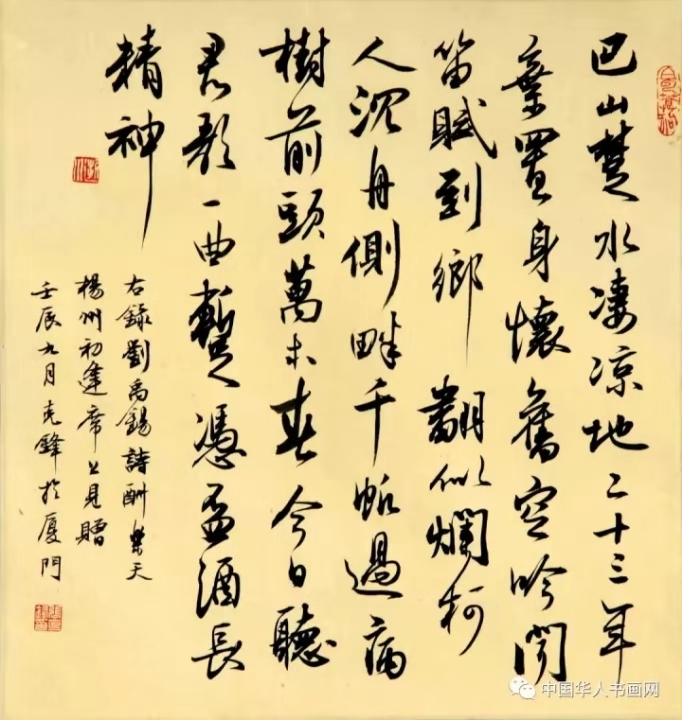 巴山楚水凄凉地二十三年
棄置身懷舊空吟聞
笛賦到鄉翻似爛柯
人沉舟側畔千帆過病
樹前頭萬木春今日聽
君歌一曲暫憑盃酒長
精神
右録劉禹錫詩酬樂天
楊州初逢席上見贈
壬辰九月克鋒於厦門
中国华人书画网